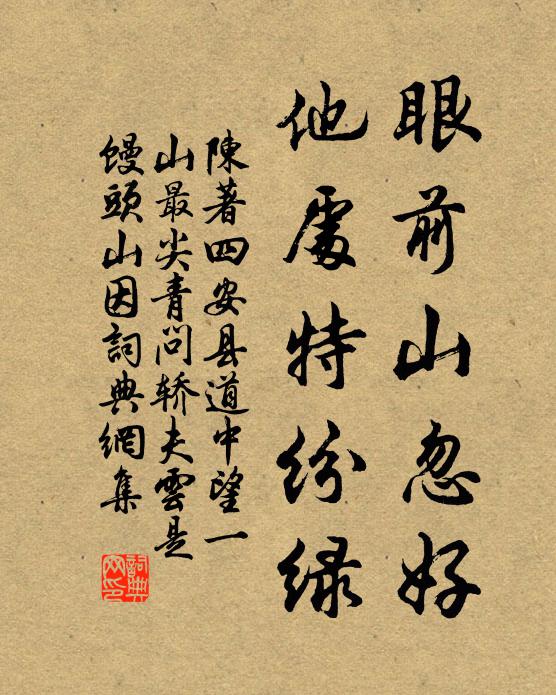 眼前山忽好
他處特紛绿
陳著四安县道中望一
山最尖青問轿夫雲是
馒頭山因詞典網集
詞典網印